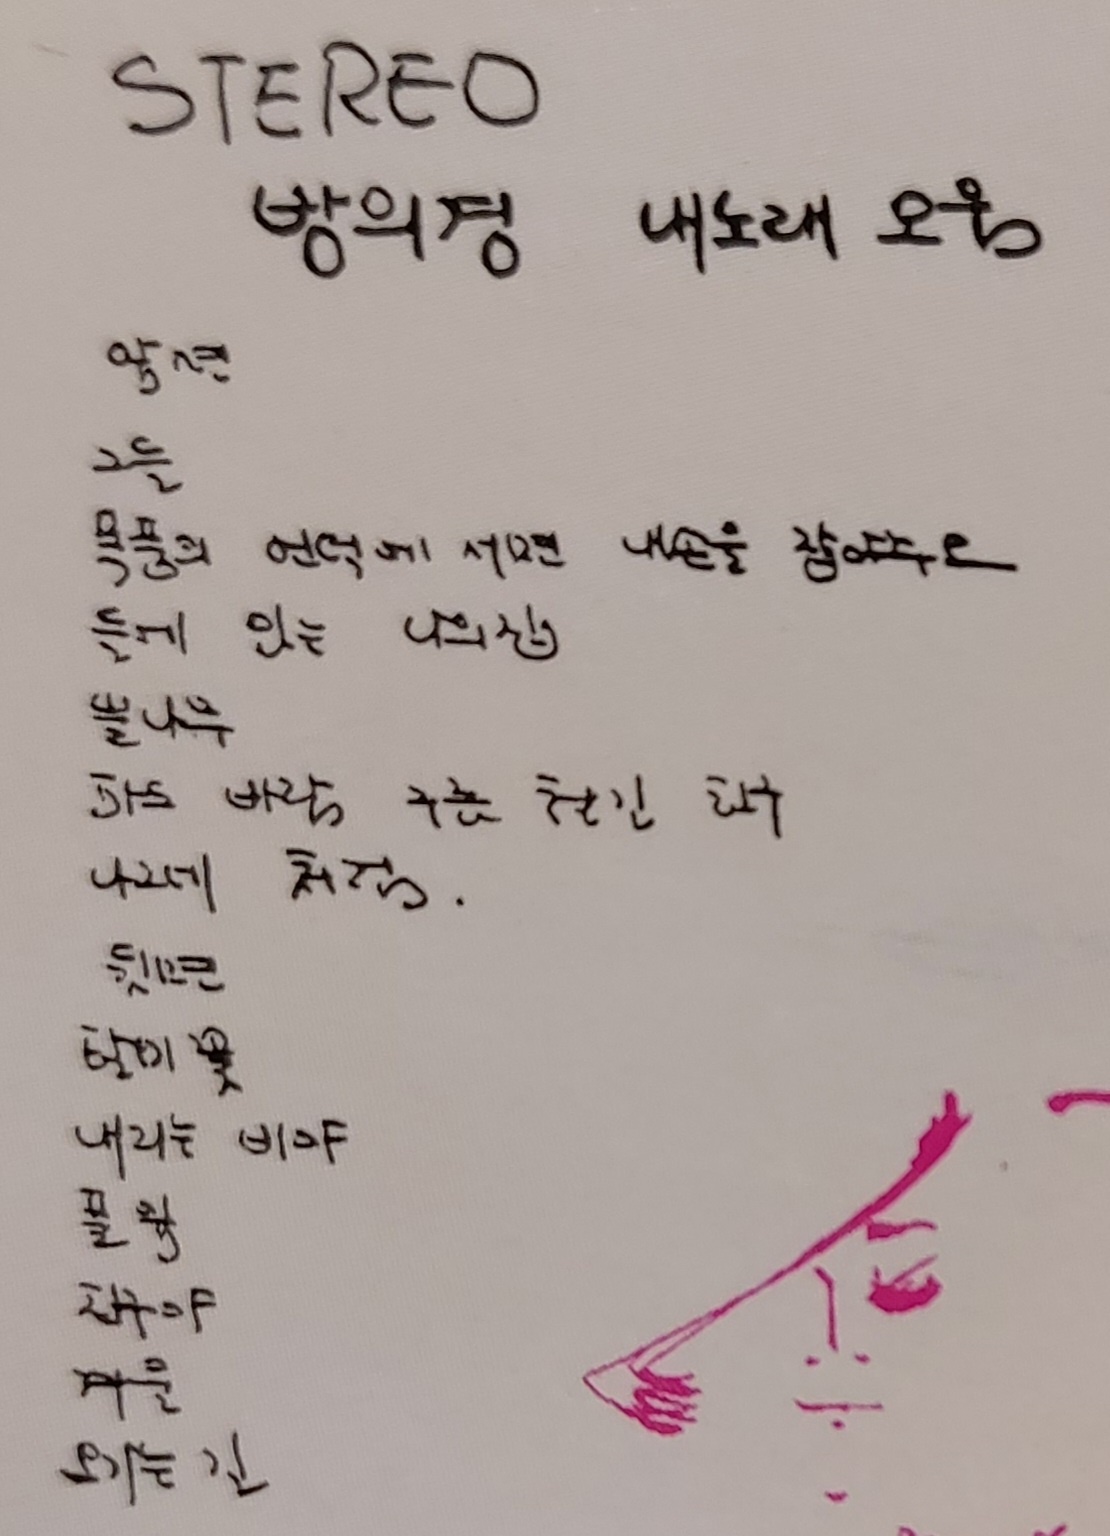 STEREO
방의경 내노래 모음
앞면
그들
폭풍의 언덕에 서면 내손을 잡아주오
들에 있는 나의집
불나무
파도 바람 구름 친구
뒷면
할미꽃
내리는 비야
풀잎
친구야
겨울
오가는 길